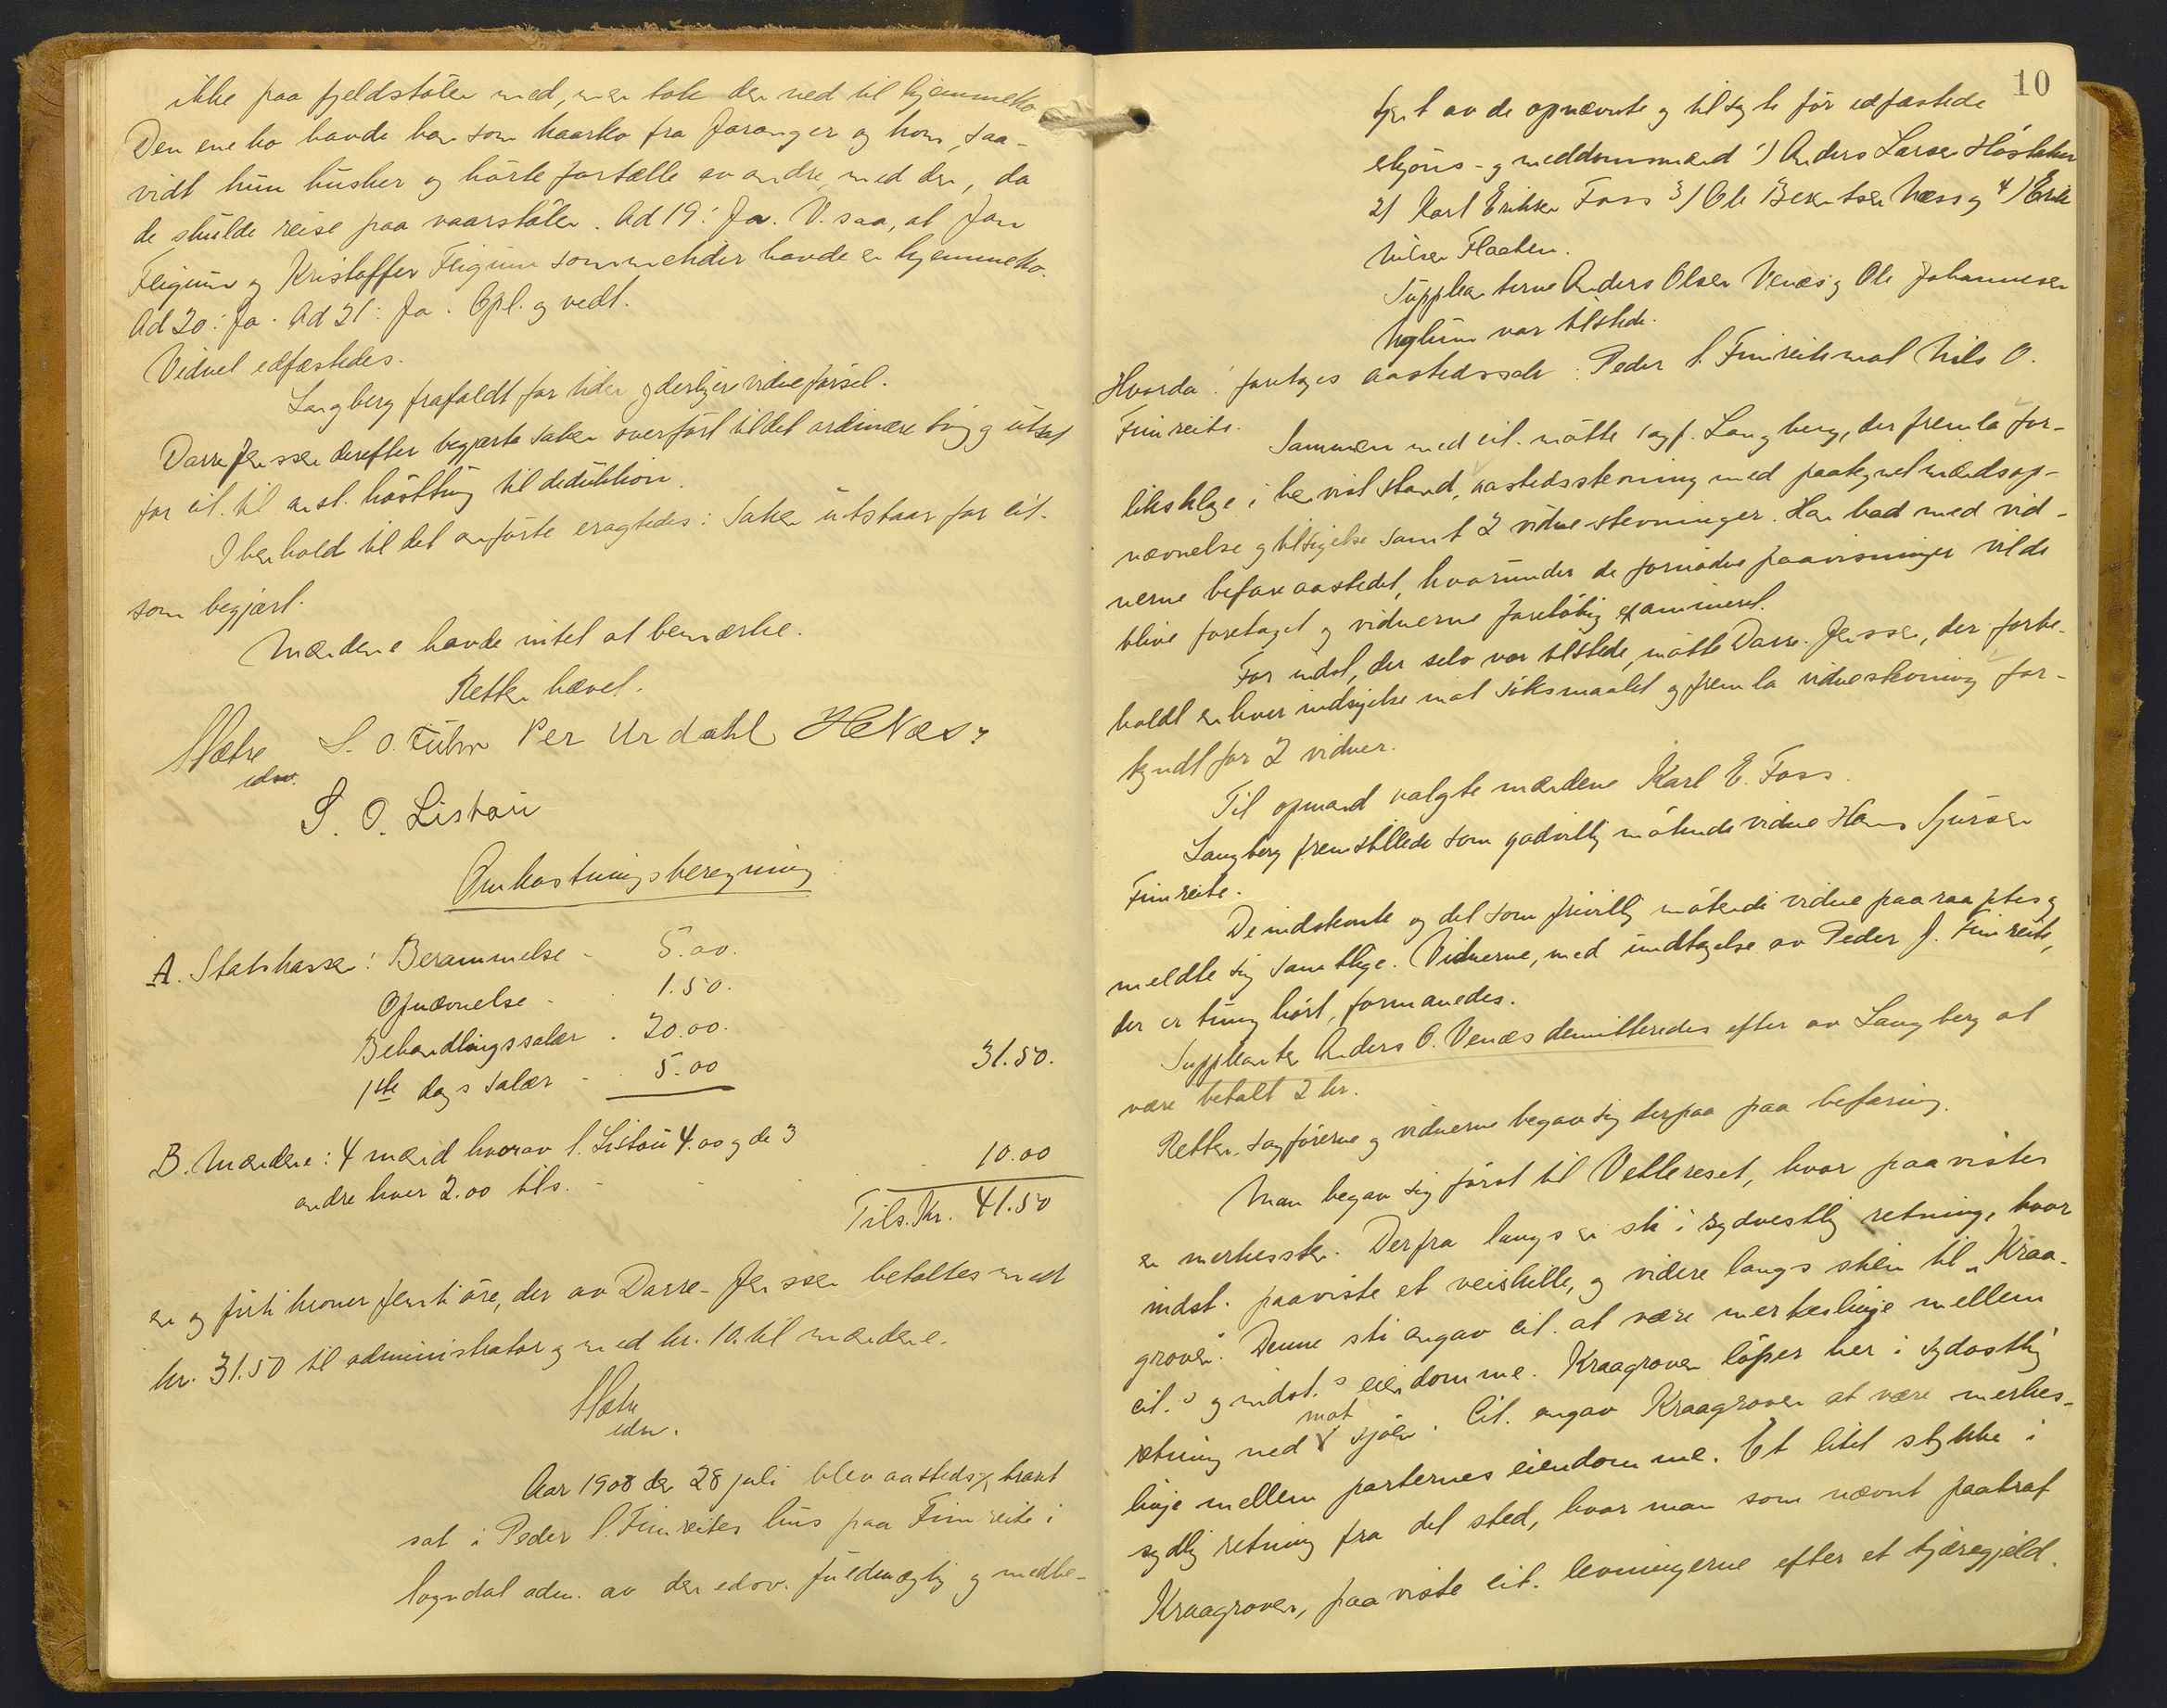 ikke paa fjeldstölen med, men tok den ned til hjemmeko.
Den ene ko havde han som haarko fra Jaranger og hom, saa-
vidt hun husker og hörte fortælle av andre, med den, da
de skulde reise paa vaarstölen. Ad 19: Ja. V. saa, at Jon
Feigum og Kristoffer Feigum sommetider havde en hjemmeko.
Ad 20: Ja. Ad 21: Ja. Opl. og vedt.
Vidnet edfæstedes.
Langberg frafaldt for tiden yderligere vidneförsel.
Darre Jenssen derefter begjærte saken overfört til det ordinære ting og utsat
for cit. til anst. höstting til deduktion.
I henhold til det anförte eragtedes: Saken utstaar for cit.
som begjært.
Mændene havde intet at bemærke.
Retten hævet.
Sætre S. O. Fuhr Per Urdahl H Næss
edsv.
S. O. Listöu
Omkostningsberegning
A. Statskassen: Berammelse - 5.00.
Opnævnelse - 1.50.
Behandlingssalær . 20.00.
1ste dags salær - 5.00 31.50.
B. Mændene: 4 mænd hvorav l. Listöu 4.00 og de 3
andre hver 2.00 tils. - - - 10.00
Tils. Kr. 41.50
en og firti kroner femti öre, der av Darre-Jenssen betaltes med
kr. 31.50 til administrator og med kr. 10. til mændene.
Sætre
edsv.
Aar 1908 den 28 juli blev aastedsextraret
sat i Peder l. Fimreites hus paa Fimreite i
Sogndal adm. av den edsv. fuldmægtig og medbe-
10
tjent av de opnævnte og tilsagte för edfæstede
skjöns- og meddomsmænd 1) Anders Larsen Hóslaken
2) Karl Eriksen Foss 3) Ole Berntsen Næss og 4) Erik
Nilsen Flaaten.
Supplanterne Anders Olsen Venæs og Ole Johannesen
Uglum var tilstede.
Hvorda: foretoges aastedssak: Peder l. Fimreite mot Nils O.
Fimreite.
Sammen med cit. mötte sagf. Langberg, der fremla for-
liksklage i henvist stand, aastedsstevning med paategnet mændsop-
nævnelse og tilsigelse samt 2 vidnestevninger. Han bad med vid-
nerne befare aastedet, hvorunder de fornödne paavisninger vilde
blive foretaget og vidnerne foretöbig examineret.
For indst, der selv var tilstede, mötte Darre-Jenssen, der forbe-
holdt enhver indsigelse mot söksmaalet og fremla vidnestevning for-
kyndt for 2 vidner.
Til opmand valgte mændene Karl E. Foss.
Langberg fremstillede som godvillig mötende vidne Hans Sjursen
Fimreite.
De indstevnte og det som frivillig mötende vidne paaraaptes og
meldte sig samtlige. Vidnerne, med undtagelse av Peder J. Fimreite,
der er tung hört, formanedes.
Supplanten Anders O. Venæs demitteredes efter av Langberg at
være betalt 2 kr.
Retten, sagförerne og vidnerne begav sig derpaa paa befaring.
Man begav sig först til Vetlereset, hvor paavistes
en merkessten. Derfra langs en sti i sydvestlig retning, hvor
indst. paaviste et veiskille, og videre langs stien til „Kraa-
groven“. Denne sti angav cit. at være merkeslinje mellem
cit.s og indst.s eiendomme. Kraagroven löper her i sydostlig
retning ned mot sjöen. Cit. angav Kraagroven at være merkes-
linje mellem parternes eiendomme. Et litet stykke i
sydlig retning fra det sted, hvor man som nævnt paatraf
Kraagroven, paaviste cit. levningerne efter et tjæregjeld.